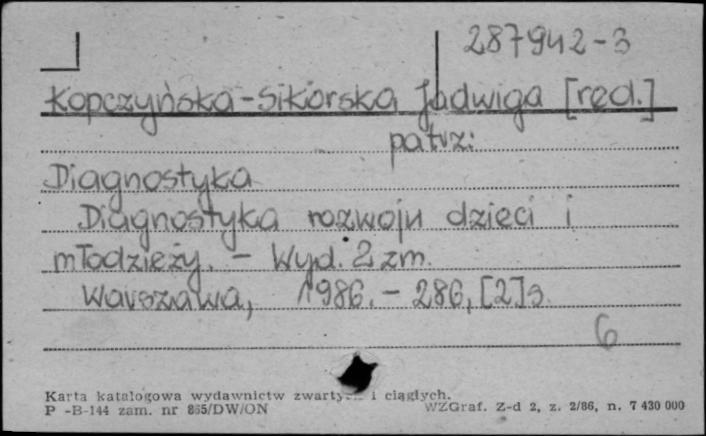 287942-3
Kopczyńska-Sikorska Jadwiga [red.]
patrz:
Diagnostyka
Diagnostyka rozwoju dzieci i
młodzieży. - Wyd. 2 zm.
Warszawa, 1986. - 286, [2] s.
6
Karta katalogowa wydawnictw zwartych i ciągłych.
P -B-144 zam. nr 865/DW/ON WZGraf. Z-d 2, z. 2/86, n. 7 430 000